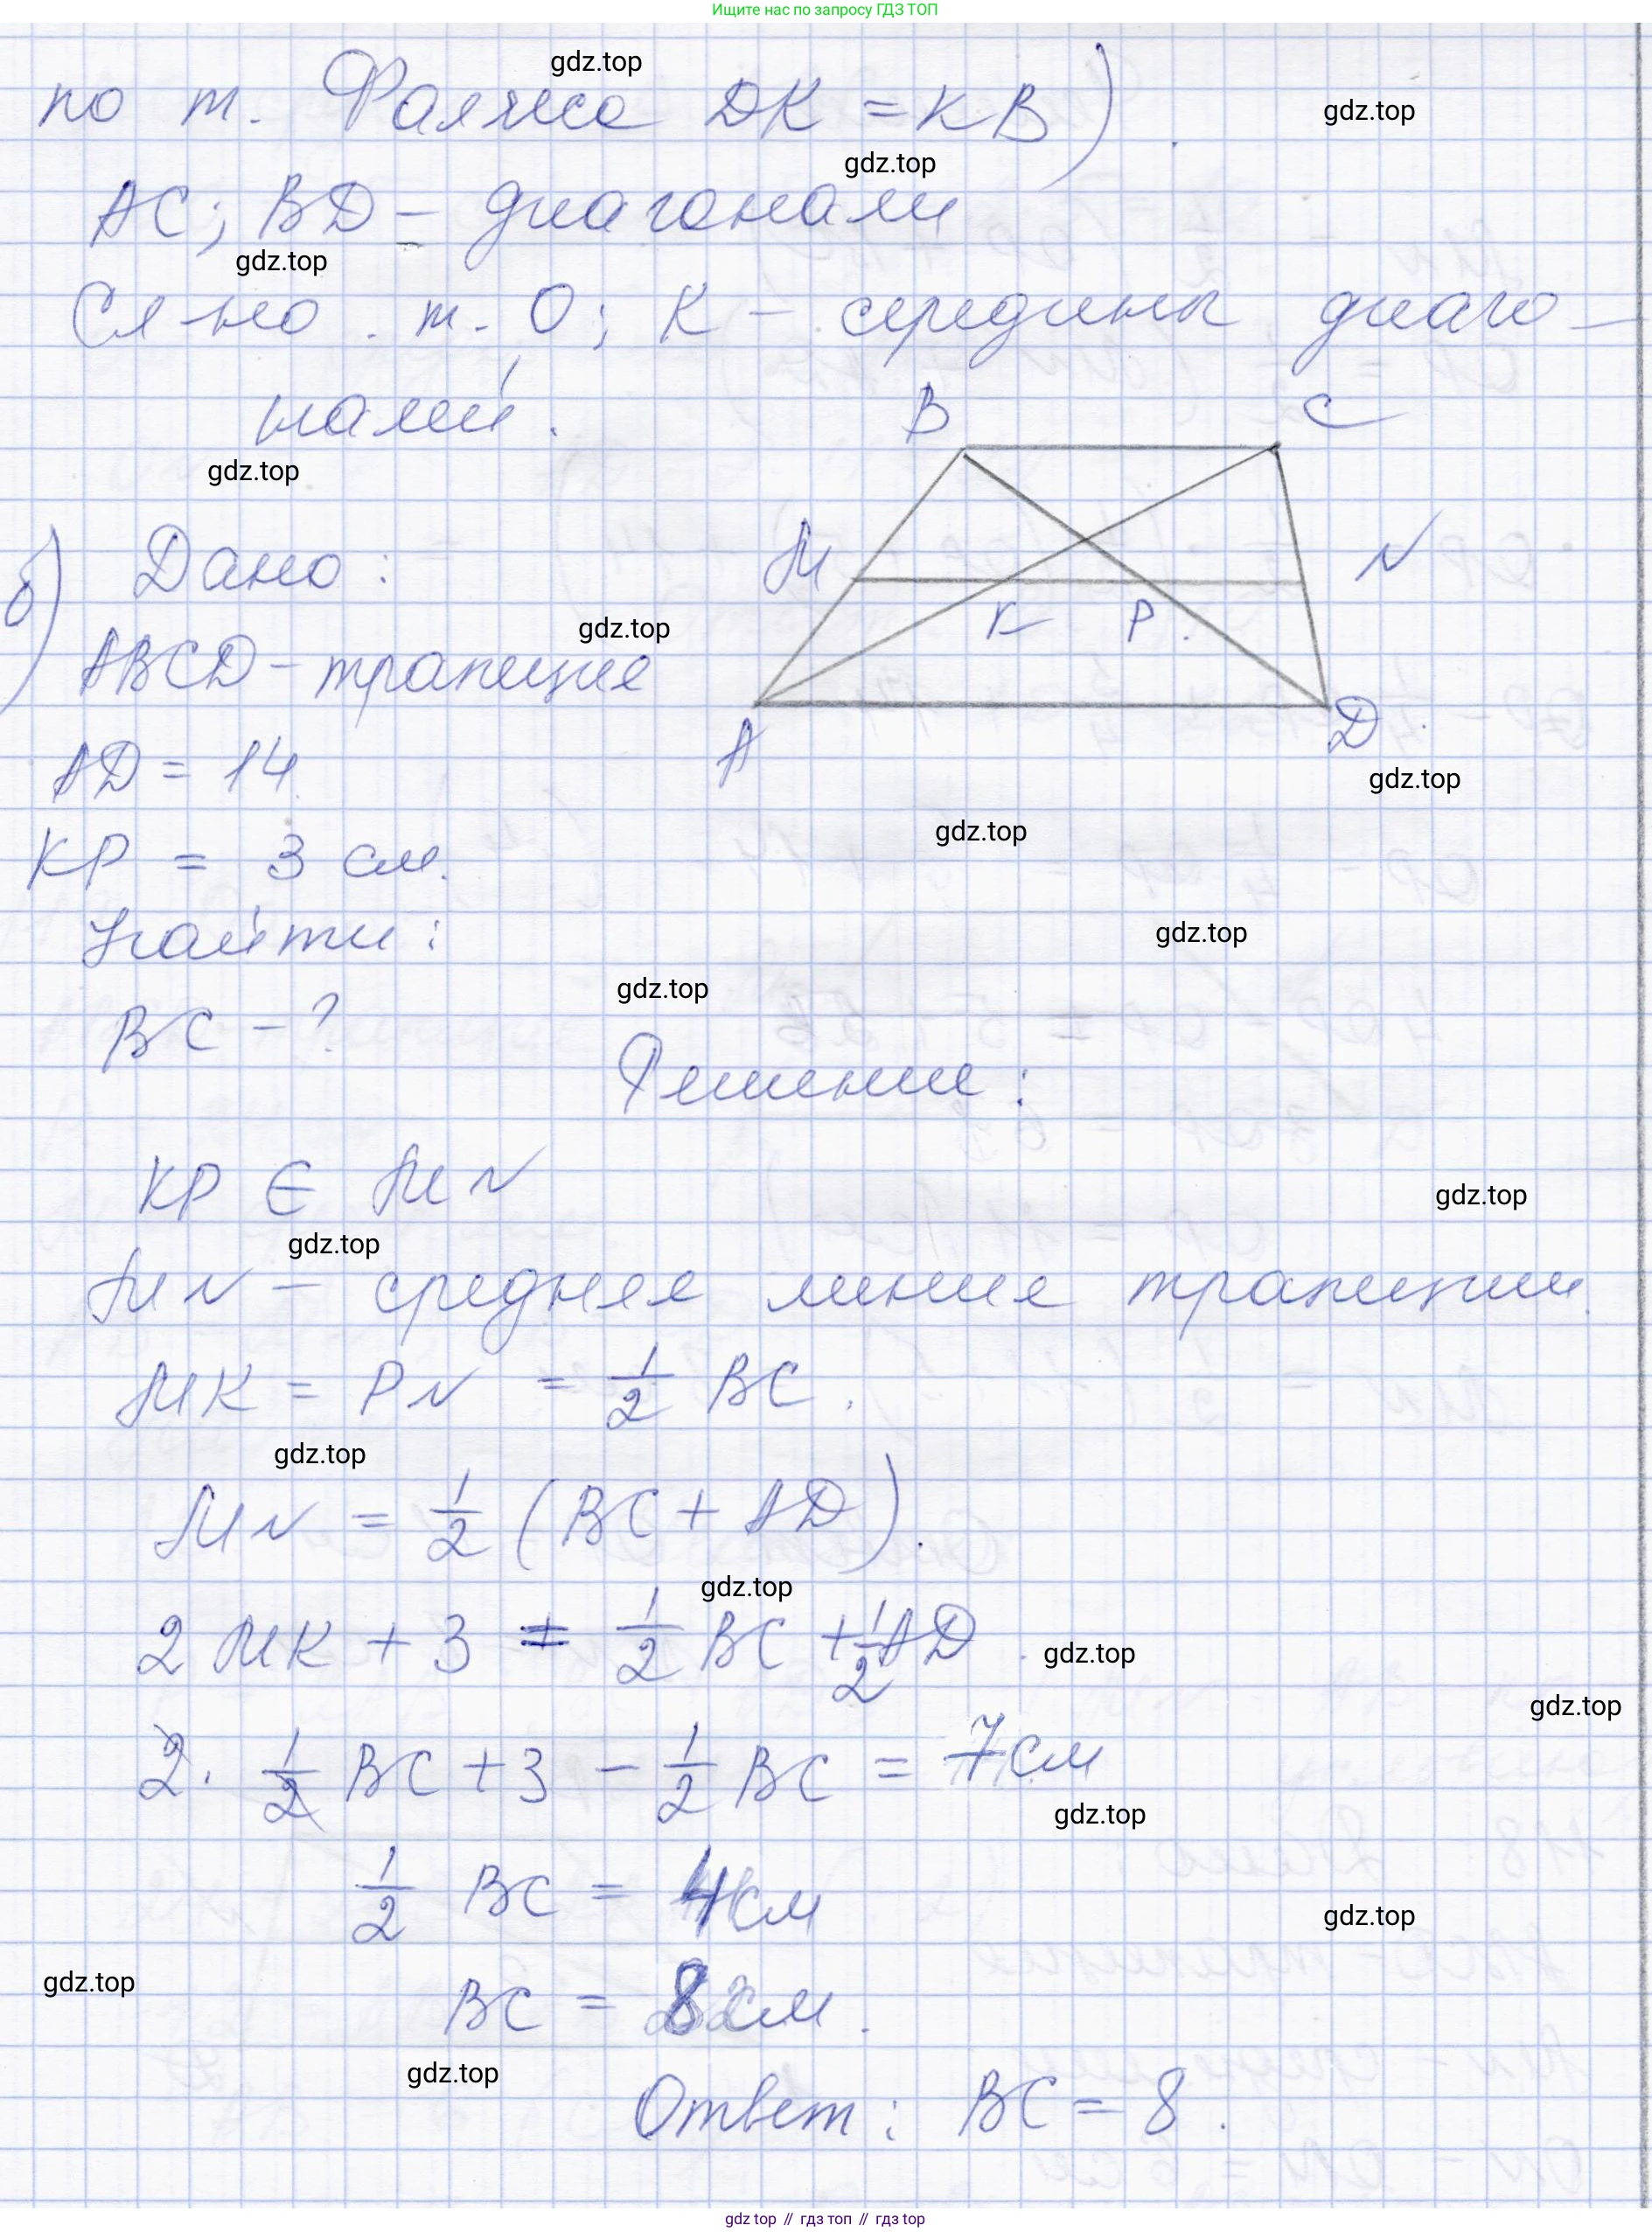 Ищите нас по запросу ГДЗ ТОП
gdz.top
по т. Фалеса DK = KB)
gdz.top
gdz.top
AC; BD – диагонали
gdz.top
Сл-но т. O; K – середины диаго-
налей.
B C
gdz.top
б) Дано:
M N
gdz.top
K P
ABCD – трапеция
A D
AD = 14
gdz.top
gdz.top
KP = 3 см.
Найти:
gdz.top
gdz.top
BC – ?
Решение:
KP ∈ MN
gdz.top
gdz.top
MN – средняя линия трапеции.
MK = PN = 1/2 BC.
gdz.top
MN = 1/2 (BC + AD).
gdz.top
2 MK + 3 = 1/2 BC + 1/2 AD
gdz.top
gdz.top
2 · 1/2 BC + 3 – 1/2 BC = 7 см
gdz.top
1/2 BC = 4 см
gdz.top
gdz.top
BC = 8 см.
gdz.top
Ответ: BC = 8.
gdz top // гдз топ // гдз top